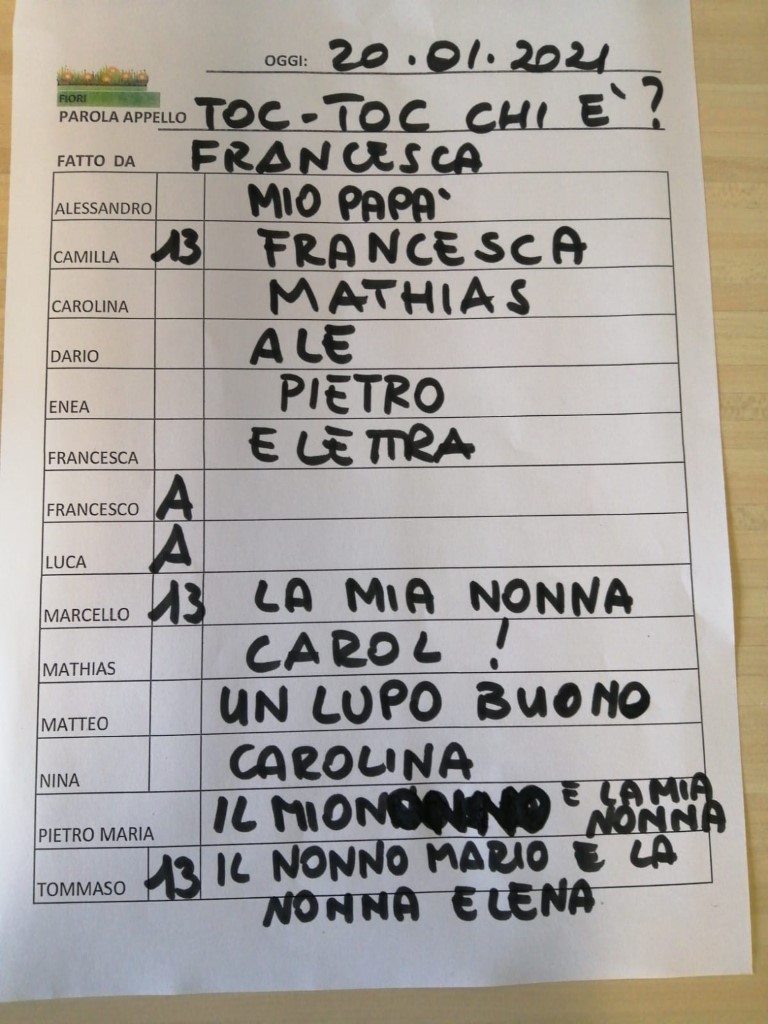 OGGI: 20.01.2021
FIORI
PAROLA APPELLO TOC-TOC CHI E'?
FATTO DA FRANCESCA
ALESSANDRO MIO PAPA'
CAMILLA 13 FRANCESCA
CAROLINA MATHIAS
DARIO ALE
ENEA PIETRO
FRANCESCA ELETTRA
FRANCESCO A
LUCA A
MARCELLO 13 LA MIA NONNA
MATHIAS CAROL !
MATTEO UN LUPO BUONO
NINA CAROLINA
PIETRO MARIA IL MIO NONNO E LA MIA
NONNA
TOMMASO 13 IL NONNO MARIO E LA
NONNA ELENA